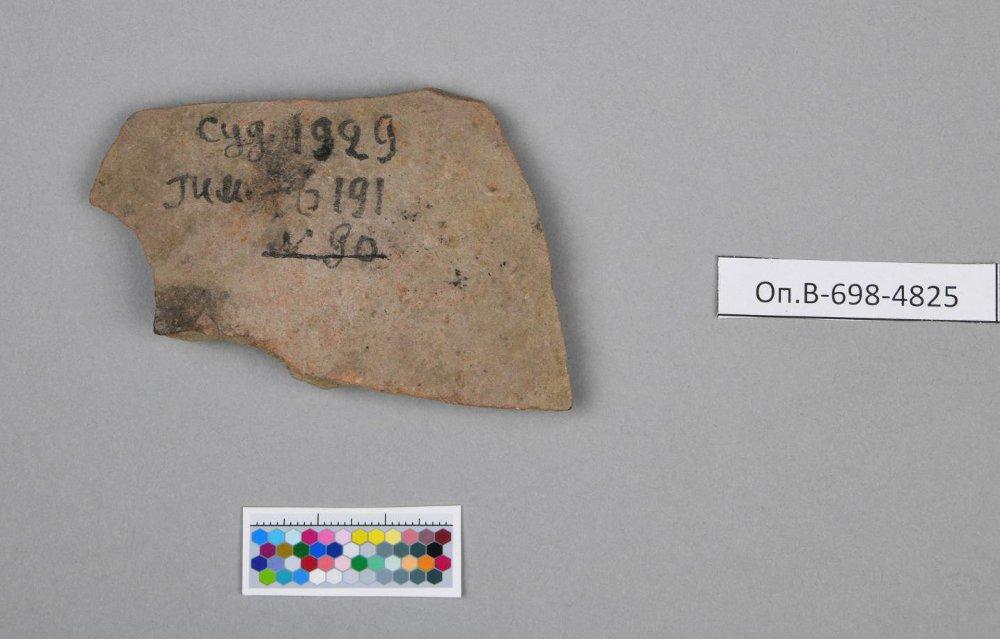 Суд. 1929
ГИМ - 6191
№ 90
Оп.В-698-4825